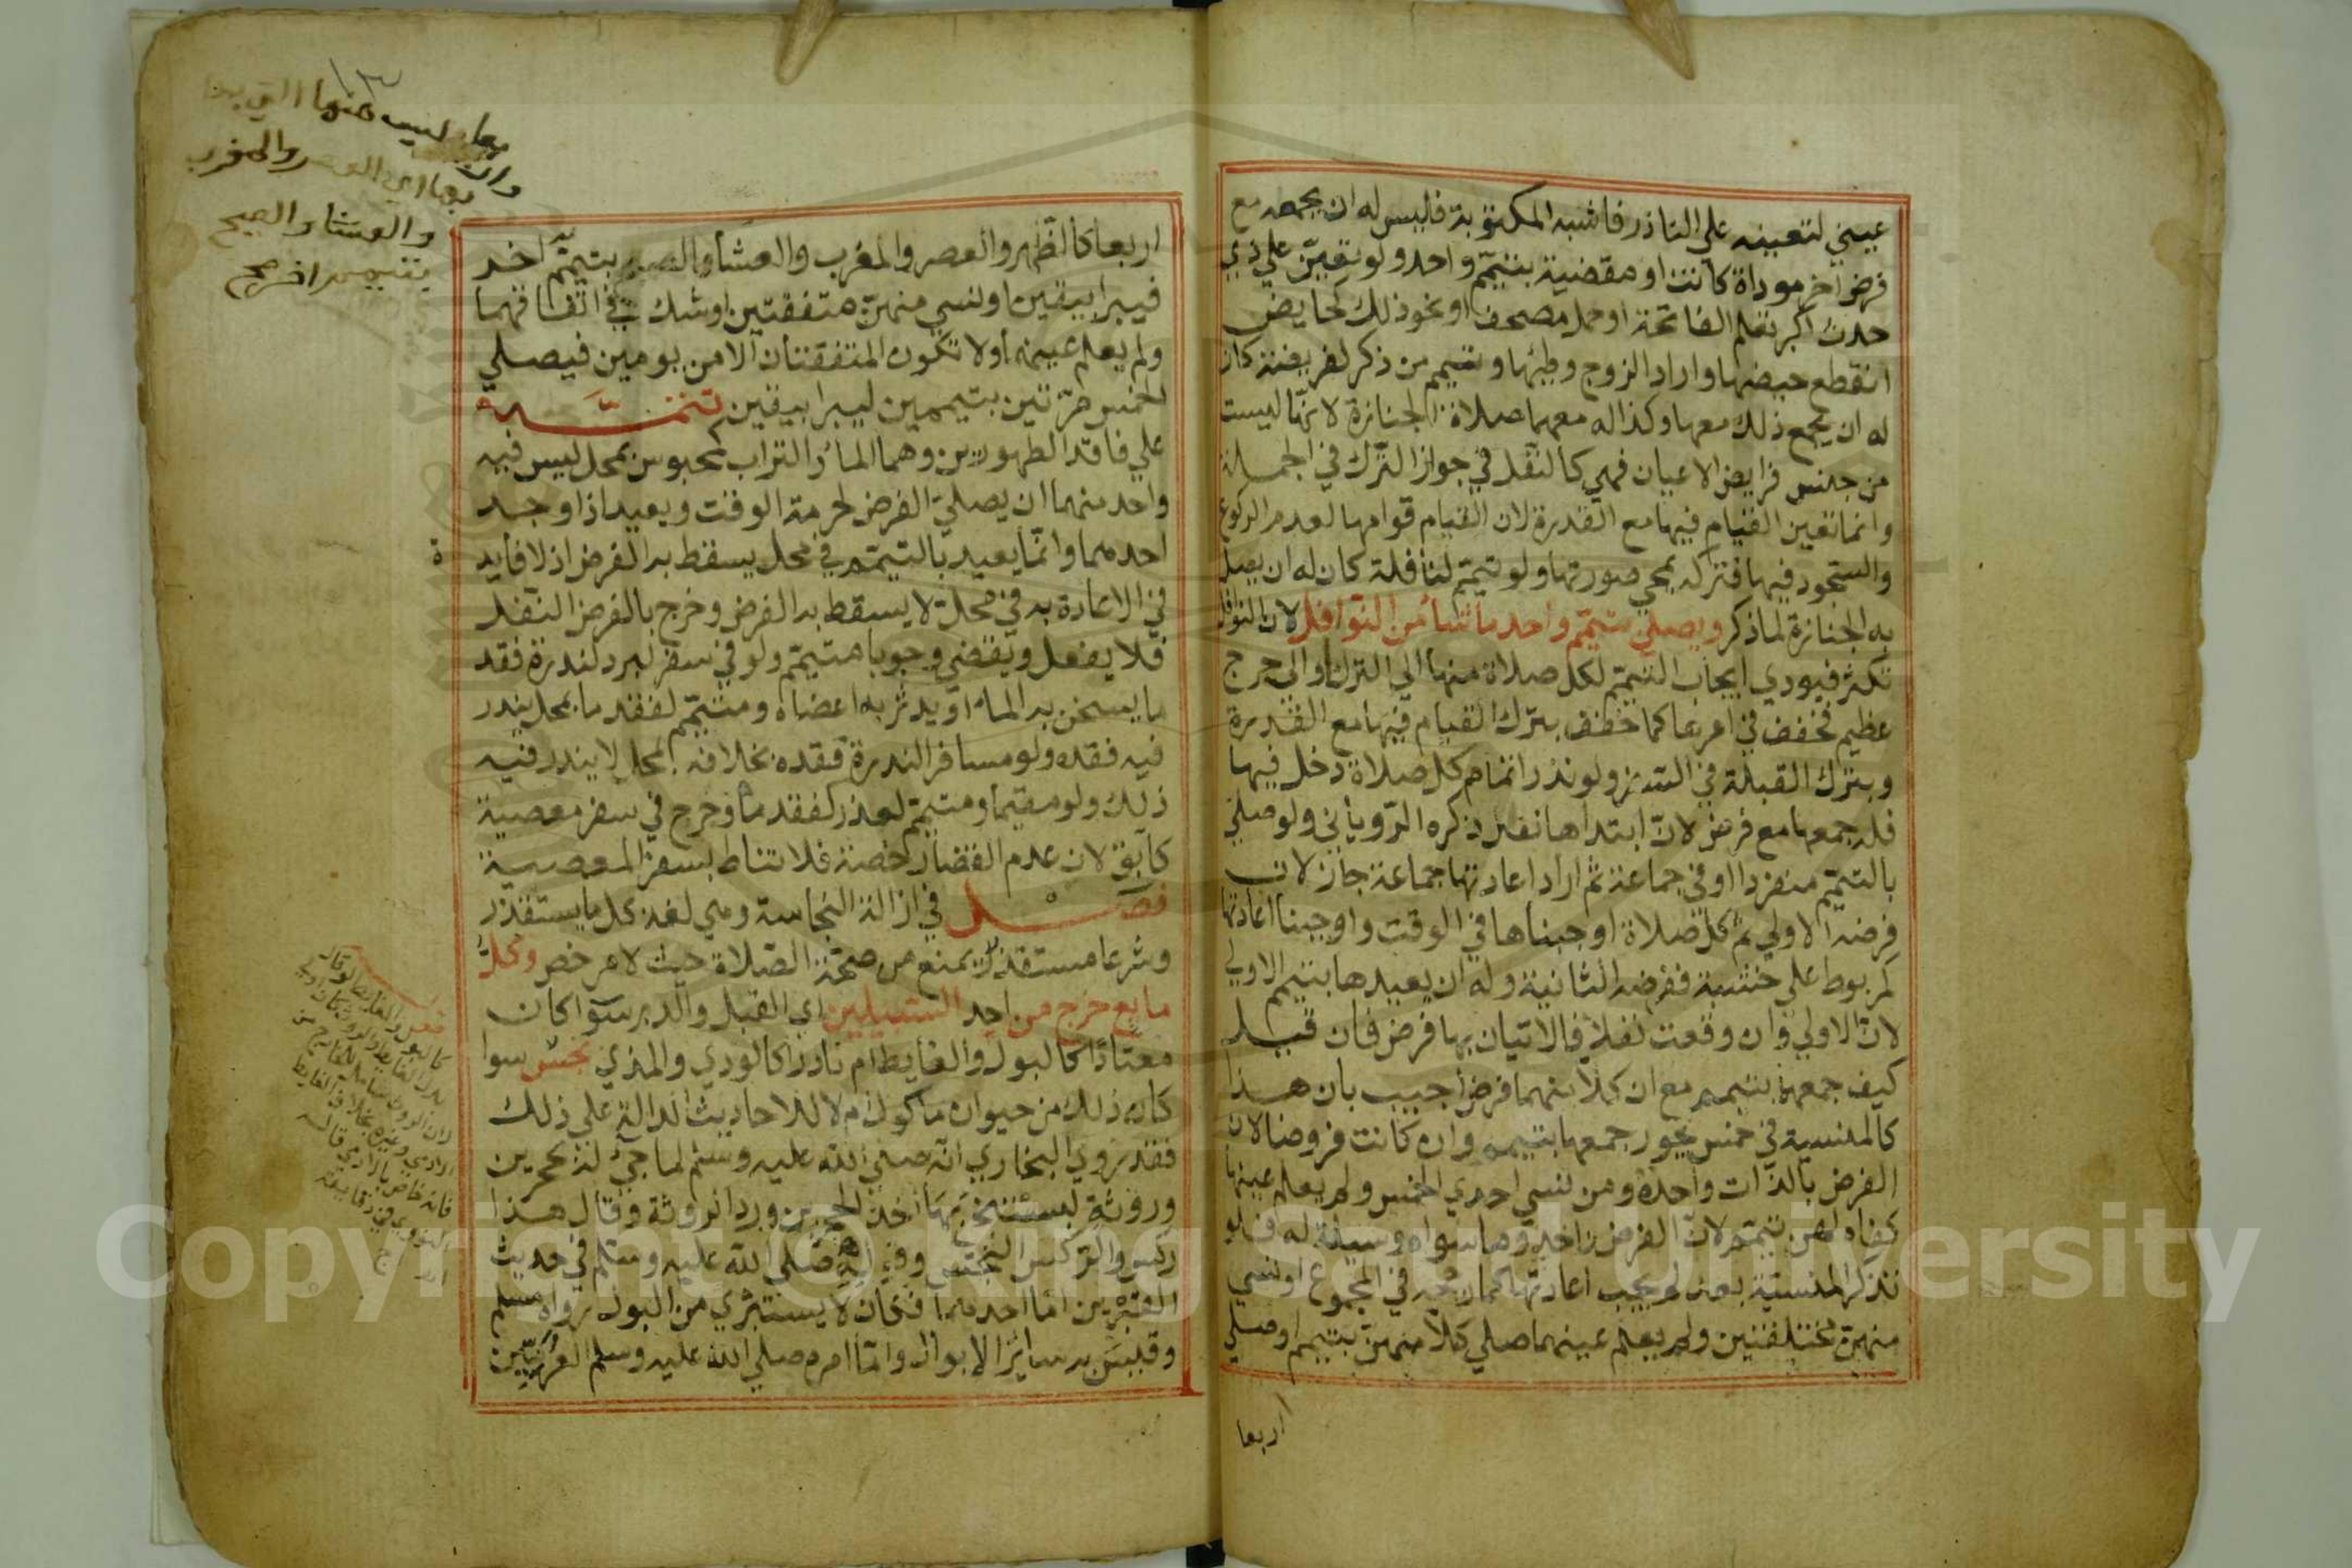 عيني لتعينه علي الناذر فاشبه المكتوبة فليس له ان يجمعه مع
فرض اخر موداة كانت او مقضية بتيمّم واحد ولو تعيّن علي ذي
حدث اكبر تعلم الفاتحة او حمل مصحف او نحو ذلك كحايض
انقطع حيضها واراد الزوج وطيها وتيمم من ذكر لفريضة كان
له ان يجمع ذلك معها وكذا له معهما صلاة الجنازة لانّها ليست
من جنس فرايض الاعيان فهي كالنفل في جواز الترك في الجملة
وانما تعين القيام فيها مع القدرة لان القيام قوامها لعدم الركوع
والسجود فيها فتركه يمحي صورتها ولو تيمّم لنافلة كان له ان يصلي
به الجنازة لما ذكر ويصلي بتيمّم واحد ما شاء من النوافل لان النوافل
تكثر فيودي ايجاب التيمّم لكل صلاة منها الي الترك او الى حرج
عظيم فخفف في امرها كما خفف بترك القيام فيها مع القدرة
وبترك القبلة في السفر ولو نذر اتمام كل صلاة دخل فيها
فله جمعها مع فرض لانّ ابتداها نفل ذكره الرّوياني ولو صلي
بالتيمّم منفردا او في جماعة ثم اراد اعادتها جماعة جاز لان
فرضه الاولي ثم كل صلاة اوجبناها في الوقت واوجبنا اعادتها
كمربوط علي خشبة ففرضه الثانية وله ان يعيدها بتيمم الاولي
لانّ الاولي وان وقعت نفلا فالاتيان بها فرض فان قيل
كيف جمعهما بتيمم مع ان كلا منهما فرض اجيب بان هذا
كالمنسية في خمس يجوز جمعها بتيمم وان كانت فروضا لان
الفرض بالذات واحدة ومن نسي احدي الخمس ولم يعلم عينها
كفاه لهن تيمّم لانّ الفرض واحد وما سواه وسيلة له فلو
تذكر المنسية بعد لم يجب اعادتها كما رجحه في المجموع او نسي
منهنّ مختلفتين ولم يعلم عينهما صلي كلا منهنّ بتيمم او صلي
اربعا
١٣
والعشا والصبح
بتيمم اخر صح
اربعا كالظهر والعصر والمغرب والعشا والصبح بتيمّم اخر
فيبرا بيقين او نسي منهنّ متفقتين او شك في اتفاقهما
ولم يعلم عينه ولا تكون المتفقتان الا من يومين فيصلي
الخمس مرّتين بتيممين ليبرا بيقين تتمّة
علي فاقد الطهورين وهما الماء والتراب كمحبوس بمحل ليس فيه
واحد منهما ان يصلي الفرض لحرمة الوقت ويعيد اذا وجد
احدهما وانّما يعيد بالتيمّم في محل يسقط به الفرض اذ لا فايدة
في الاعادة به في محلّ لا يسقط به الفرض وخرج بالفرض النفل
فلا يفعل ويقضي وجوبا متيمّم ولو في سفر لبرد لندرة فقد
ما يسخن به الماء او يدثر به اعضاه ومتيمّم لفقد ما بمحل يندر
فيه فقده ولو مسافر الندرة فقده بخلافه بمحل لا يندر فيه
ذلك ولو مقيما ومتيمّم لعذر كفقد ما وجرح في سفر معصية
كآبق لان عدم القضا رخصة فلا تناط بسفر المعصية
فصل في ازالة النجاسة وهي لغة كل ما يستقذر
وشرعا مستقذر يمنع من صحّة الصّلاة حيث لا مرخص وكلّ
مايع خرج من احد السبيلين اي القبل والدبر سوا كان
معتادًا كالبول والغايط ام نادرا كالودي والمذي نجس سوا
كان ذلك من حيوان ماكول ام لا للاحاديث الدالة علي ذلك
فقد روي البخاري انّه صلي الله عليه وسلم لما جيء له بحجرين
وروثة ليستنجي بها اخذ الحجرين ورد الروثة وقال هذا
ركس والركس النجس وفيه صلي الله عليه وسلم في حديث
القبرين امّا احدهما فكان لا يستبري من البول رواه مسلم
وقيس به سائر الابوال وامّا امره صلي الله عليه وسلم العرنيّين